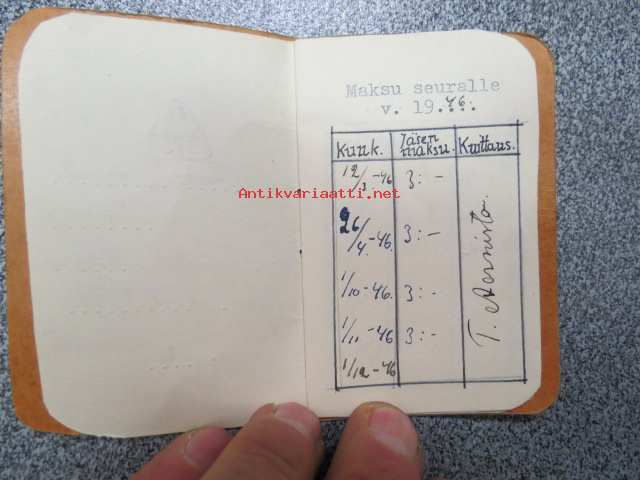 Maksu seuralle
v. 1946.
Kuuk. Jäsen maksu. Kuittaus.
12/3 -46 3: -
Antikvariaatti.net
26/4. -46. 3: -
1/10 - 46. 3: -
1/11 - 46 3: -
1/12 - 46
T.